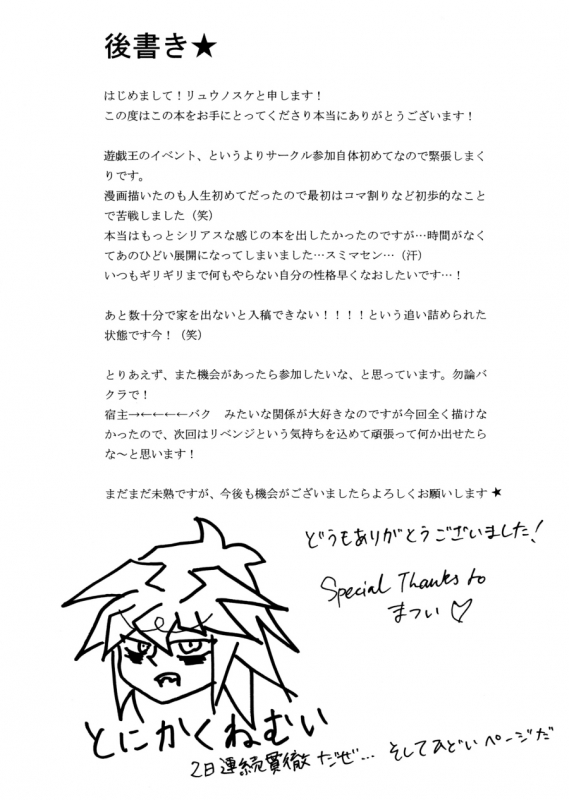 後書き★
はじめまして！リュウノスケと申します！
この度はこの本をお手にとってくださり本当にありがとうございます！
遊戯王のイベント、というよりサークル参加自体初めてなので緊張しまく
りです。
漫画描いたのも人生初めてだったので最初はコマ割りなど初歩的なこと
で苦戦しました（笑）
本当はもっとシリアスな感じの本を出したかったのですが…時間がなく
てあのひどい展開になってしまいました…スミマセン…（汗）
いつもギリギリまで何もやらない自分の性格早くなおしたいです…！
あと数十分で家を出ないと入稿できない！！！！という追い詰められた
状態です今！（笑）
とりあえず、また機会があったら参加したいな、と思っています。勿論バ
クラで！
宿主→←←←←バク　みたいな関係が大好きなのですが今回全く描けな
かったので、次回はリベンジという気持ちを込めて頑張って何か出せたら
な～と思います！
まだまだ未熟ですが、今後も機会がございましたらよろしくお願いします★
どうもありがとうございました！
Special Thanks to
まつい♡
とにかくねむい
2日連続貫徹だぜ… そしてひどいページだ